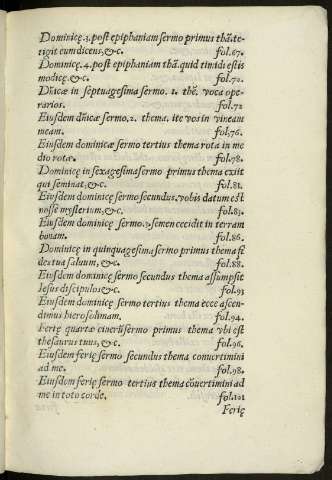 Dominicę.3.post epiphaniam sermo primus thã.te-
tigit eum dicens,&c. fol.67.
Dominicę.4.post epiphaniam thã.quid timidi estis
modicę,&c. fol.70.
Dñicæ in septuagesima sermo. 1. thẽ. voca ope-
rarios. fol.72
Eiusdem dñicæ sermo.2. thema. ite vos in vineam
meam. fol.76.
Eiusdem dominicæ sermo tertius thema rota in me
dio rotæ. fol.78.
Dominicę in sexagesima sermo primus thema exiit
qui seminat,&c. fol.81.
Eiusdem dominicę sermo secundus.vobis datum est
nosse mysterium,&c. fol.83.
Eiusdem dominicę sermo.3.semen cecidit in terram
bonam. fol.86.
Dominicę in quinquagesima sermo primus thema fi
des tua saluum,&c. fol.88.
Eiusdem dominicę sermo secundus thema assumpsit
Iesus discipulos &c. fol.93
Eiusdem dominicę sermo tertius thema ecce ascen-
dimus hierosolimam. fol.94.
Ferię quartæ cinerũ sermo primus thema vbi est
thesaurus tuus,&c. fol.96.
Eiusdem ferię sermo secundus thema conuertimini
ad me. fol.98.
Eiusdem ferię sermo tertius thema cõuertimini ad
me in toto corde. fol.101
Ferię